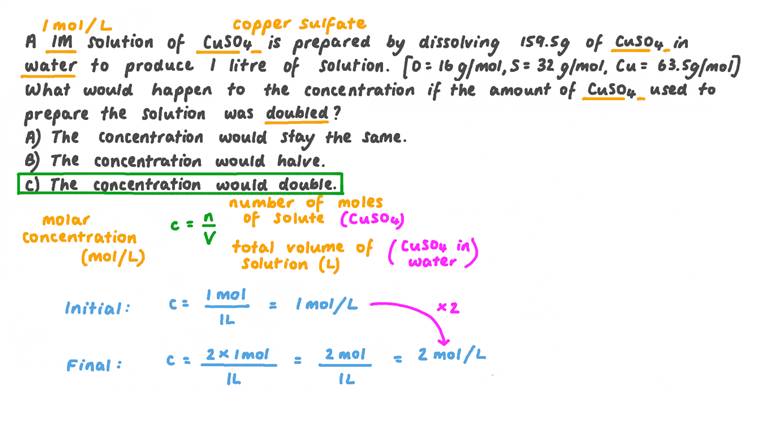 1 mol/L copper sulfate
A 1M solution of CuSO₄ is prepared by dissolving 159.5g of CuSO₄ in
water to produce 1 litre of solution. [O = 16 g/mol, S = 32 g/mol, Cu = 63.5g/mol]
What would happen to the concentration if the amount of CuSO₄ used to
prepare the solution was doubled?
A) The concentration would stay the same.
B) The concentration would halve.
C) The concentration would double.
molar concentration (mol/L)
c = n/V
number of moles of solute (CuSO₄)
total volume of solution (L) (CuSO₄ in water)
Initial: c = 1 mol/1L = 1 mol/L ×2
Final: c = 2 × 1 mol/1L = 2 mol/1L = 2 mol/L